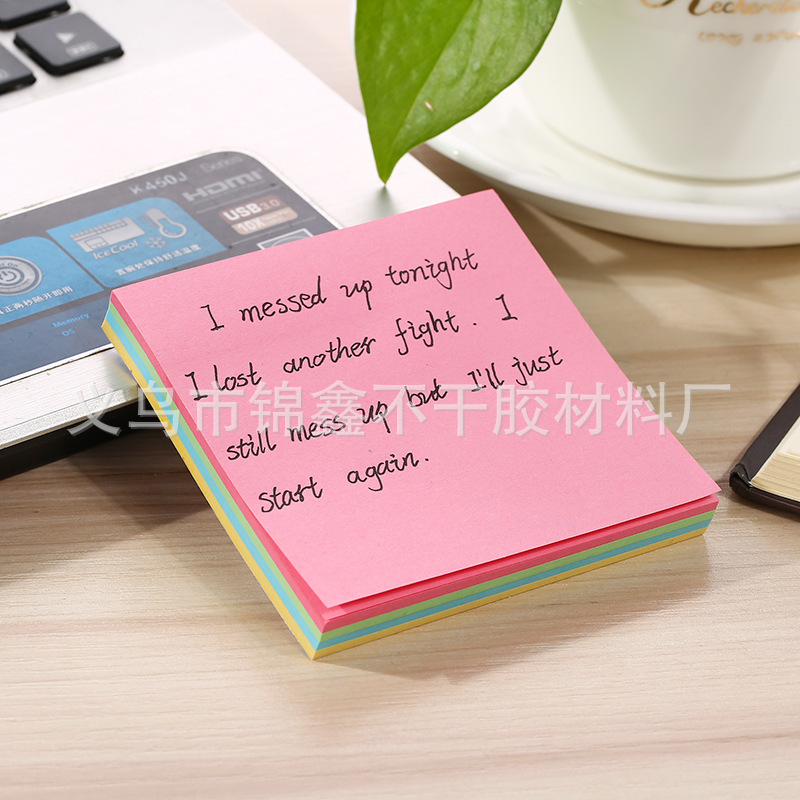 K450J Series
HDMI
USB3.0
10X
IceCool
Memory
OS
I messed up tonight
I lost another fight. I
still mess up but I'll just
start again.
义乌市锦鑫不干胶材料厂